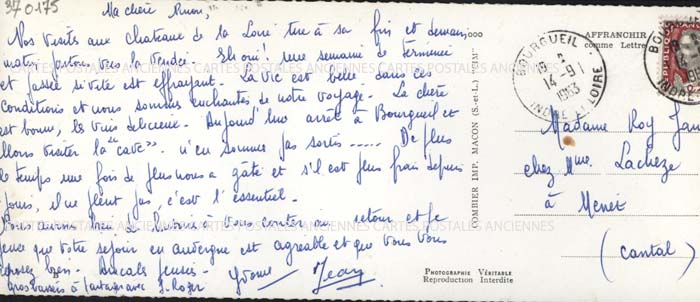 370175
Ma chère
Nos visites aux Chateaux de la Loire tire à sa fin et demain
matin partons vers la Vendée. Eh oui! une semaine de terminée
et passée si vite est effrayant. La vie est belle dans ces
conditions et nous sommes enchantés de notre voyage. La chère
est bonne, les vins délicieux. Aujourd'hui arrêt à Bourgueil et
allons visiter la "cave". n'en sommes pas sortis..... De plus
le temps une fois de plus nous a gâté et s'il est plus frais depuis
jours, il ne pleut pas, c'est l'essentiel.
Nous aurons bien de à vous conter au retour et je
pense que votre séjour en auvergne est agréable et que vous vous
reposez bien. Amicales pensées. Yvonne Jean
Gros baisers à partager avec S. Roger
COMBIER IMP. MACON (S.-et-L.) "CIM"
PHOTOGRAPHIE VÉRITABLE
Reproduction Interdite
AFFRANCHIR
comme Lettre
BOURGUEIL
14-9
INDRE ET LOIRE
Madame Roy
chez Mme Lachèze
à Menet
(Cantal)
CARTES POSTALES ANCIENNES